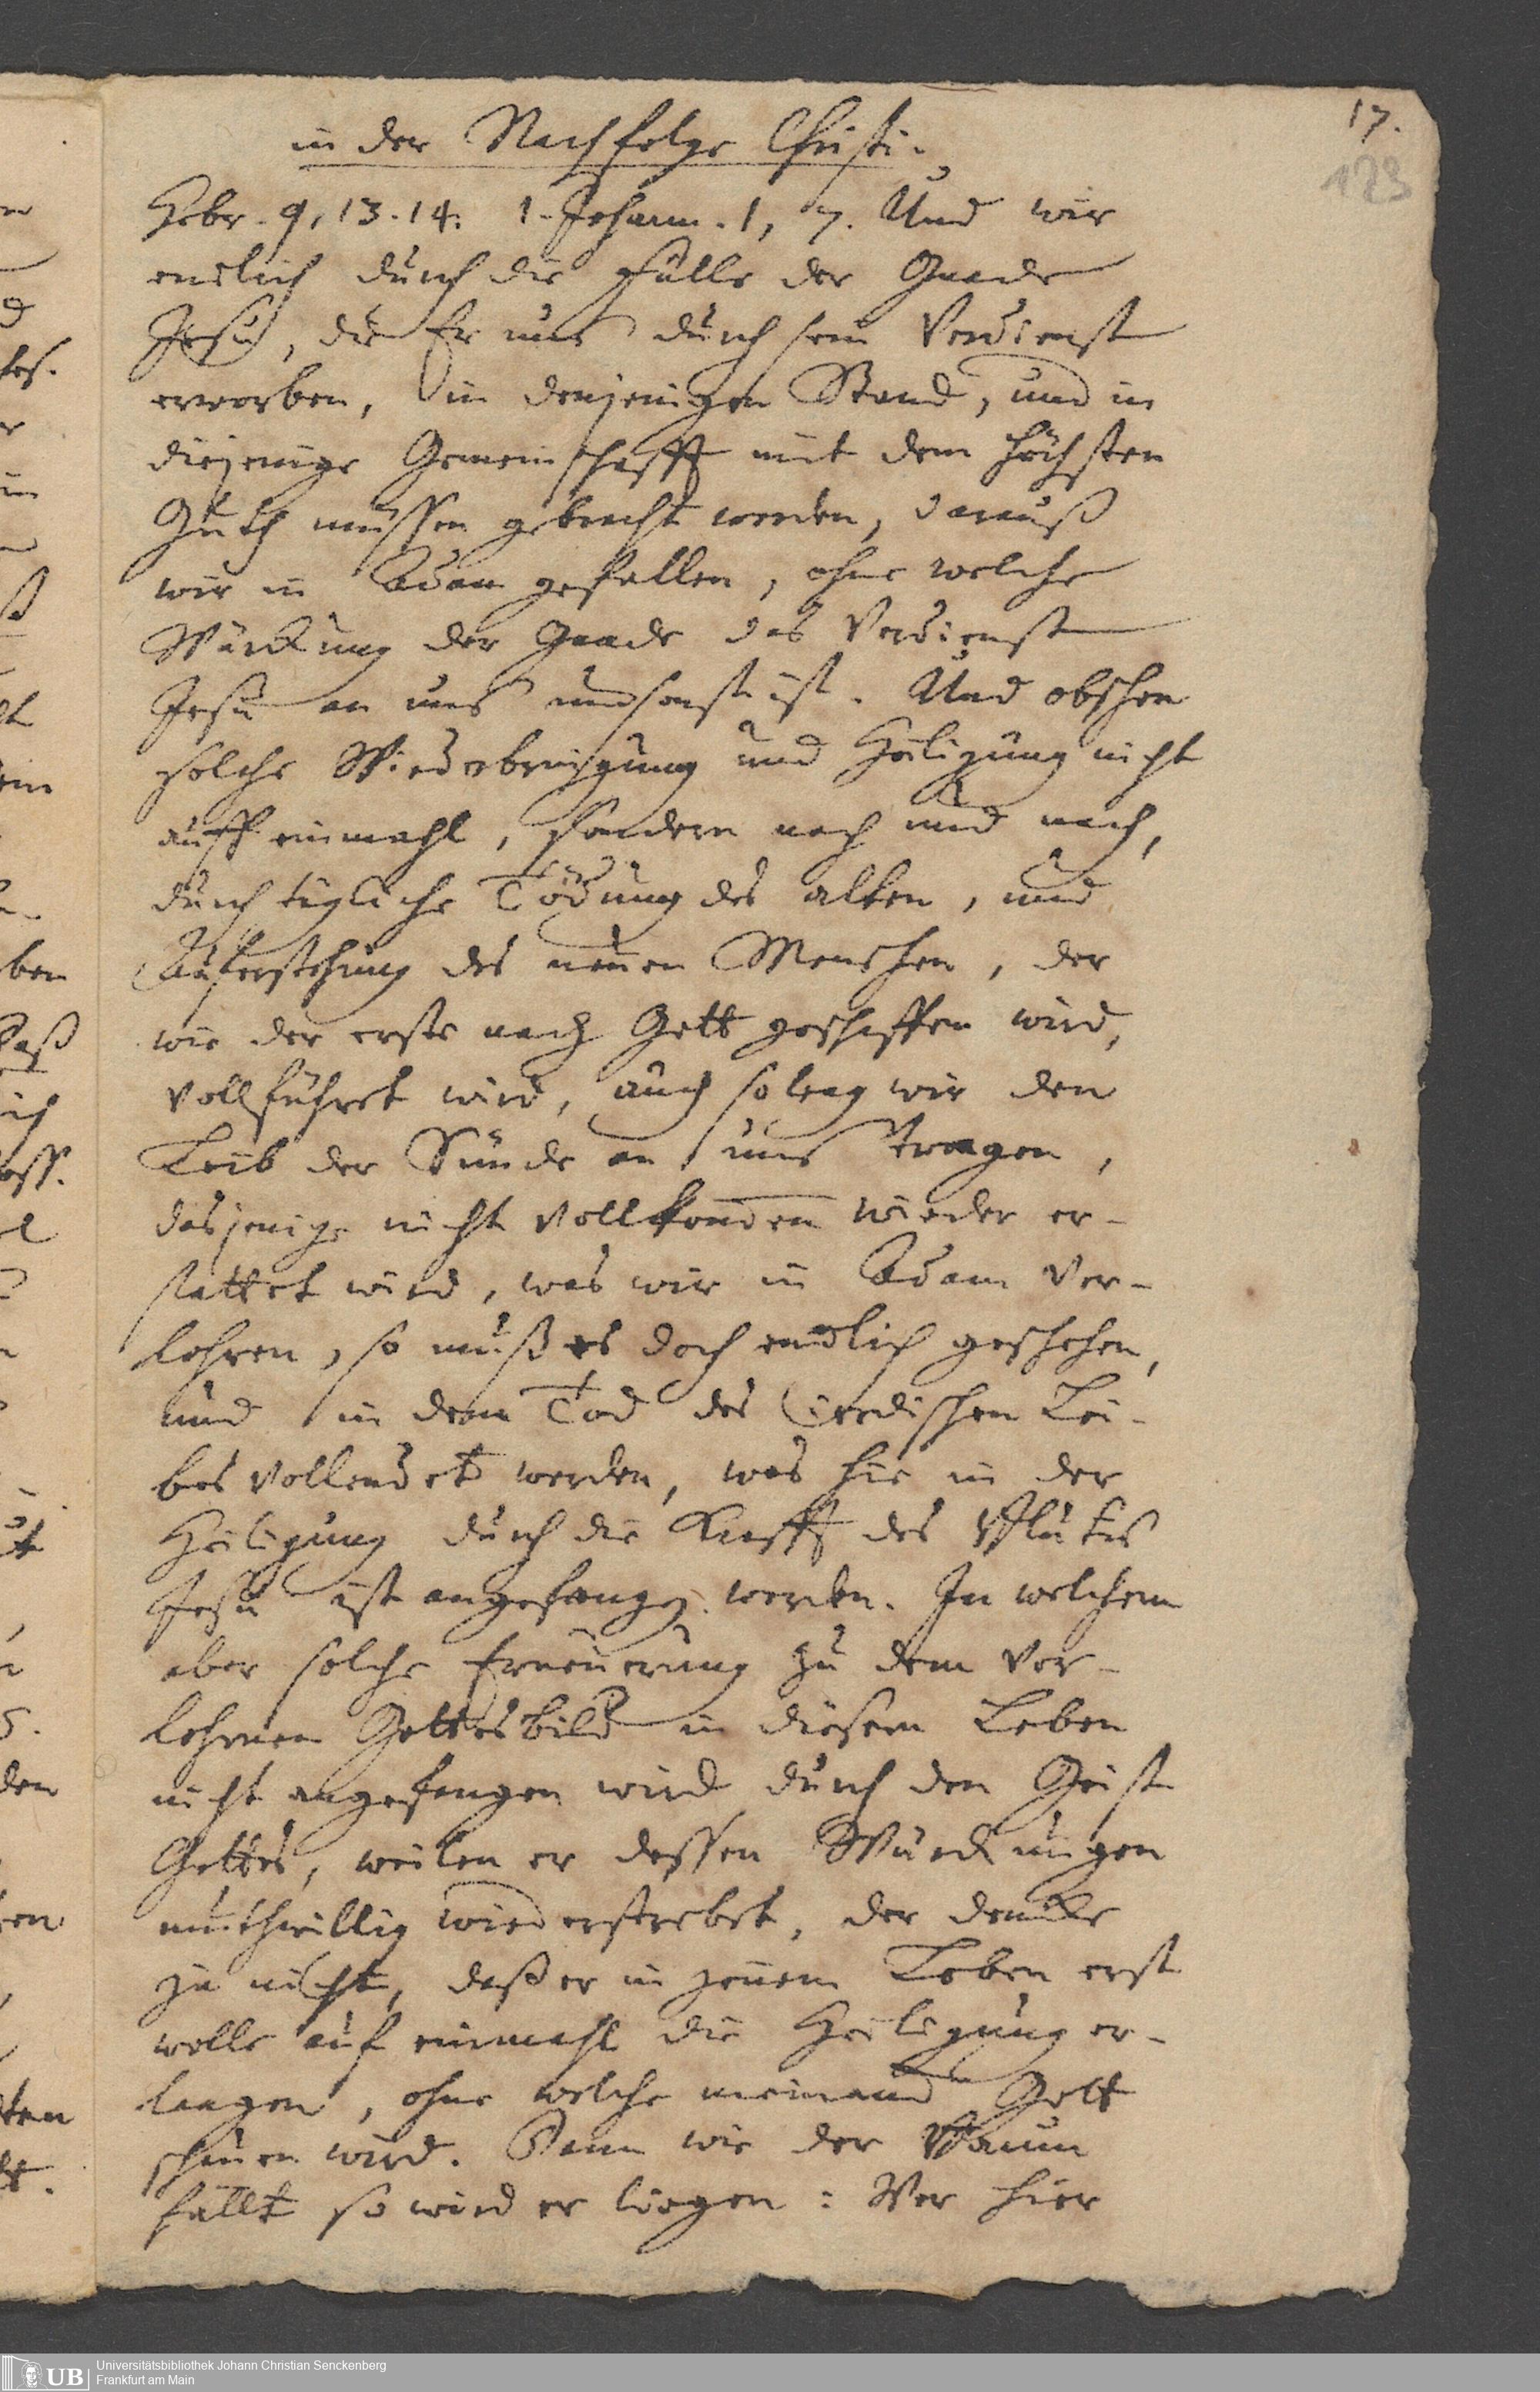 in der Nachfolge Christi.
17.
123
Hebr. 9, 13. 14. 1. Johann. 1, 7. Und wir
endlich durch die Fülle der Gnade
Jesu, die Er uns durch sein Verdienst
erworben, in denjenigen Stand, und in
diejenige Gemeinschafft mit dem höchsten
Guth müssen gebracht werden, darauß
wir in Adam gefallen, ohne welche
Würckung der Gnade das Verdienst
Jesu an uns umsonst ist. Und obschon
solche Wiederbringung und Heiligung nicht
auff einmahl, sondern nach und nach,
durch tägliche Tödung des alten, und
Auferstehung des neuen Menschen, der
wie der erste nach Gott geschaffen wird,
vollführet wird, auch so lang wir den
Leib der Sünde an uns tragen,
dasjenige nicht vollkommen wieder er-
stattet wird, was wir in Adam ver-
lohren, so muß es doch endlich geschehen,
und in dem Tod des irrdischen Lei-
bes vollendet werden, was hie in der
Heiligung durch die Krafft des Blutes
Jesu ist angefangen worden. In welchem
aber solche Erneuerung zu dem ver-
lohrnen Gottesbild in diesem Leben
nicht angefangen wird durch den Geist
Gottes, weilen er dessen Würckungen
muthwillig wiederstrebet, der dencke
ja nicht, daß er in jenem Leben erst
wolle auf einmahl die Heiligung er-
langen, ohne welche niemand Gott
schauen wird. Dann wie der Baum
fällt so wird er liegen: Wer hier
Universitätsbibliothek Johann Christian Senckenberg
Frankfurt am Main
UB